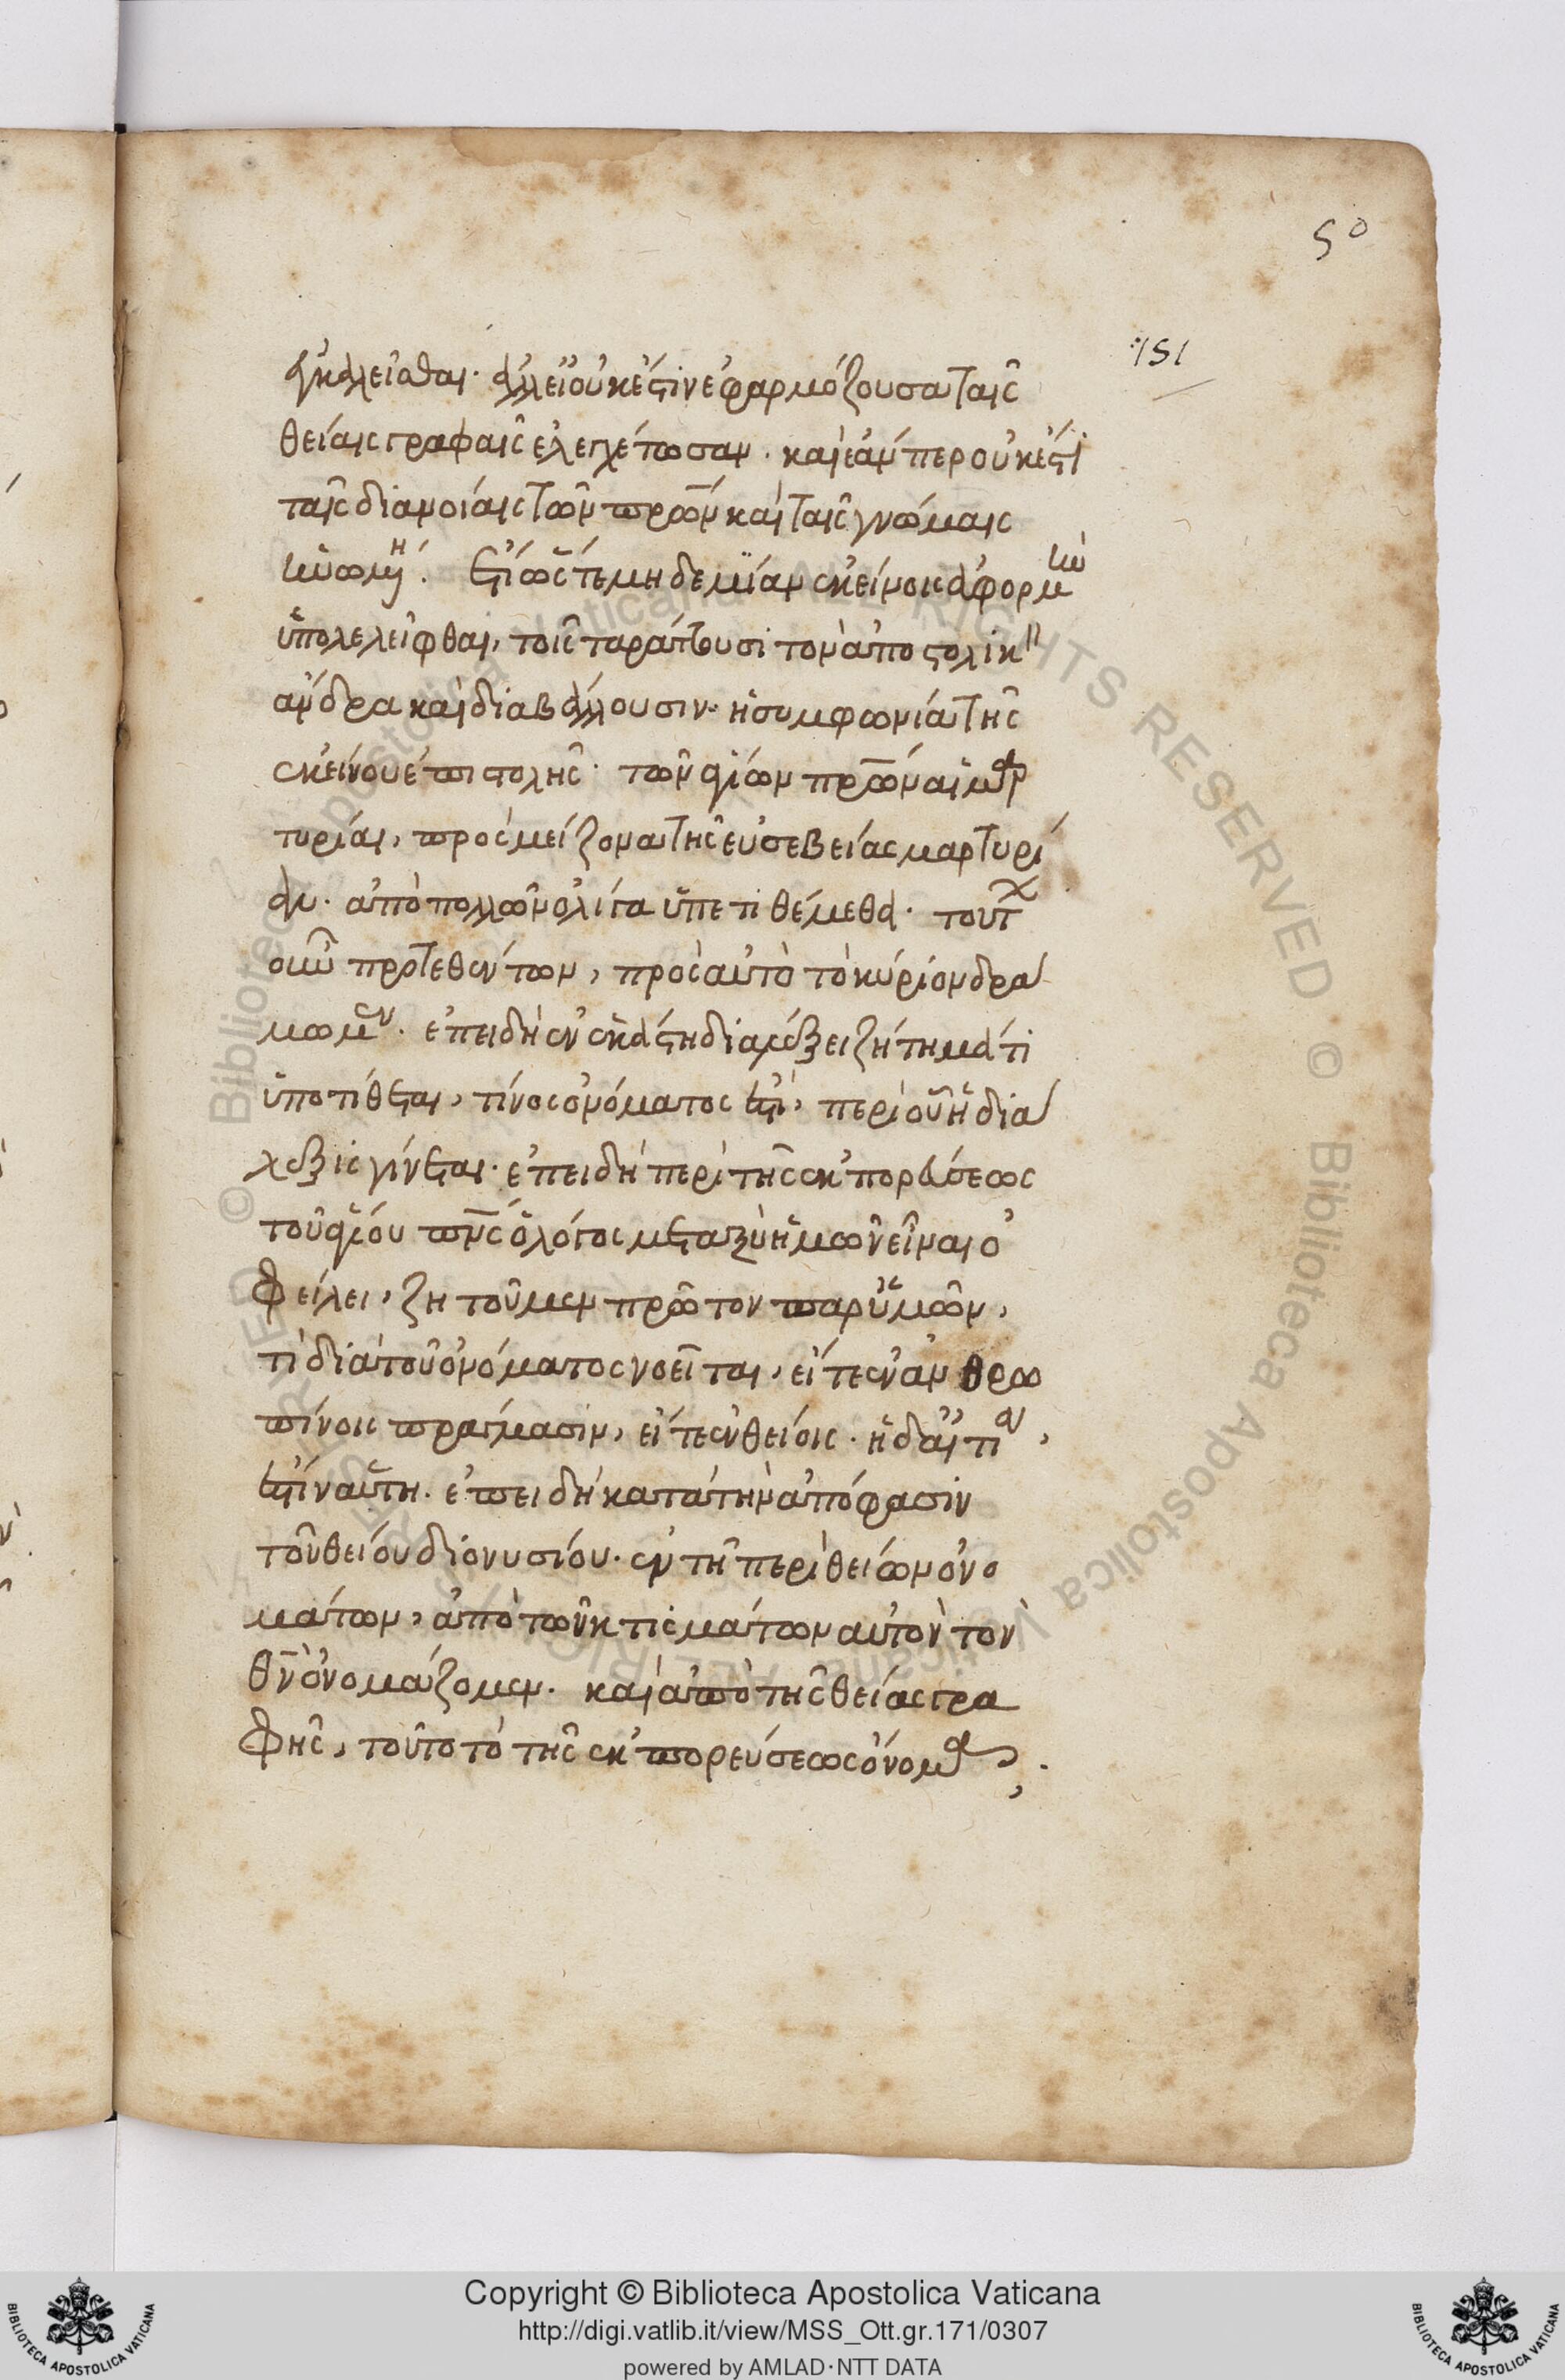 50
151
ἐγκαλεῖσθαι· ἀλλ' εἰ οὐκ ἔστιν ἐφαρμόζουσα ταῖς
θείαις γραφαῖς ἐλεγχέτωσαν. καὶ ἐάνπερ οὐκ ἔστι
ταῖς διανοίαις τῶν πρ̅ων καὶ ταῖς γνώμαις
ἡνωμένη. ἔτι ὥς τε μηδεμίαν ἐκείνοις ἀφορμὴν
ὑπολελεῖφθαι, τοῖς ταράττουσι τὸν ἀποστολικὸν
ἄνδρα καὶ διαβάλλουσιν. ἡ συμφωνία τῆς
ἐκείνου ἐπιστολῆς· τῶν ἁγίων πρ̅ων αἱ μαρ
τυρίαι, πρὸς μείζονα τῆς εὐσεβείας μαρτυρί
αν. ἀπὸ πολλῶν ὀλίγα ὑπετιθέμεθα. τούτων
οὖν προτεθέντων, πρὸς αὐτὸ τὸ κύριον δρά
μωμεν. ἐπειδὴ ἐν ἑκάστη διαλέξει ζήτημά τι
ὑποτίθεται, τίνος ὀνόματος ἐστὶ, περὶ οὗ ἡ διά
λεξις γίνεται. ἐπειδὴ περὶ τῆς ἐκπορεύσεως
τοῦ ἁγίου πν̅ς ὁ λόγος μεταξὺ ἡμῶν εἶναι ὀ
φείλει, ζητοῦμεν πρῶτον παρ' ὑμῶν,
τί διὰ τοῦ ὀνόματος νοεῖται, εἴτε ἐν ἀνθρω
πίνοις πράγμασιν, εἴτε ἐν θείοις. ἡ δ' αἰτία,
ἐστὶν αὕτη. ἐπειδὴ κατὰ τὴν ἀπόφασιν
τοῦ θείου διονυσίου. ἐν τῆ περὶ θείων ὀνο
μάτων, ἀπὸ τῶν κτισμάτων αὐτὸν τὸν
θ̅ν ὀνομάζομεν. καὶ ἀπὸ τῆς θείας γρα
φῆς, τοῦτο τὸ τῆς ἐκπορεύσεως ὄνομα.
Copyright © Biblioteca Apostolica Vaticana
http://digi.vatlib.it/view/MSS_Ott.gr.171/0307
powered by AMLAD·NTT DATA
BIBLIOTECA APOSTOLICA VATICANA
BIBLIOTECA APOSTOLICA VATICANA